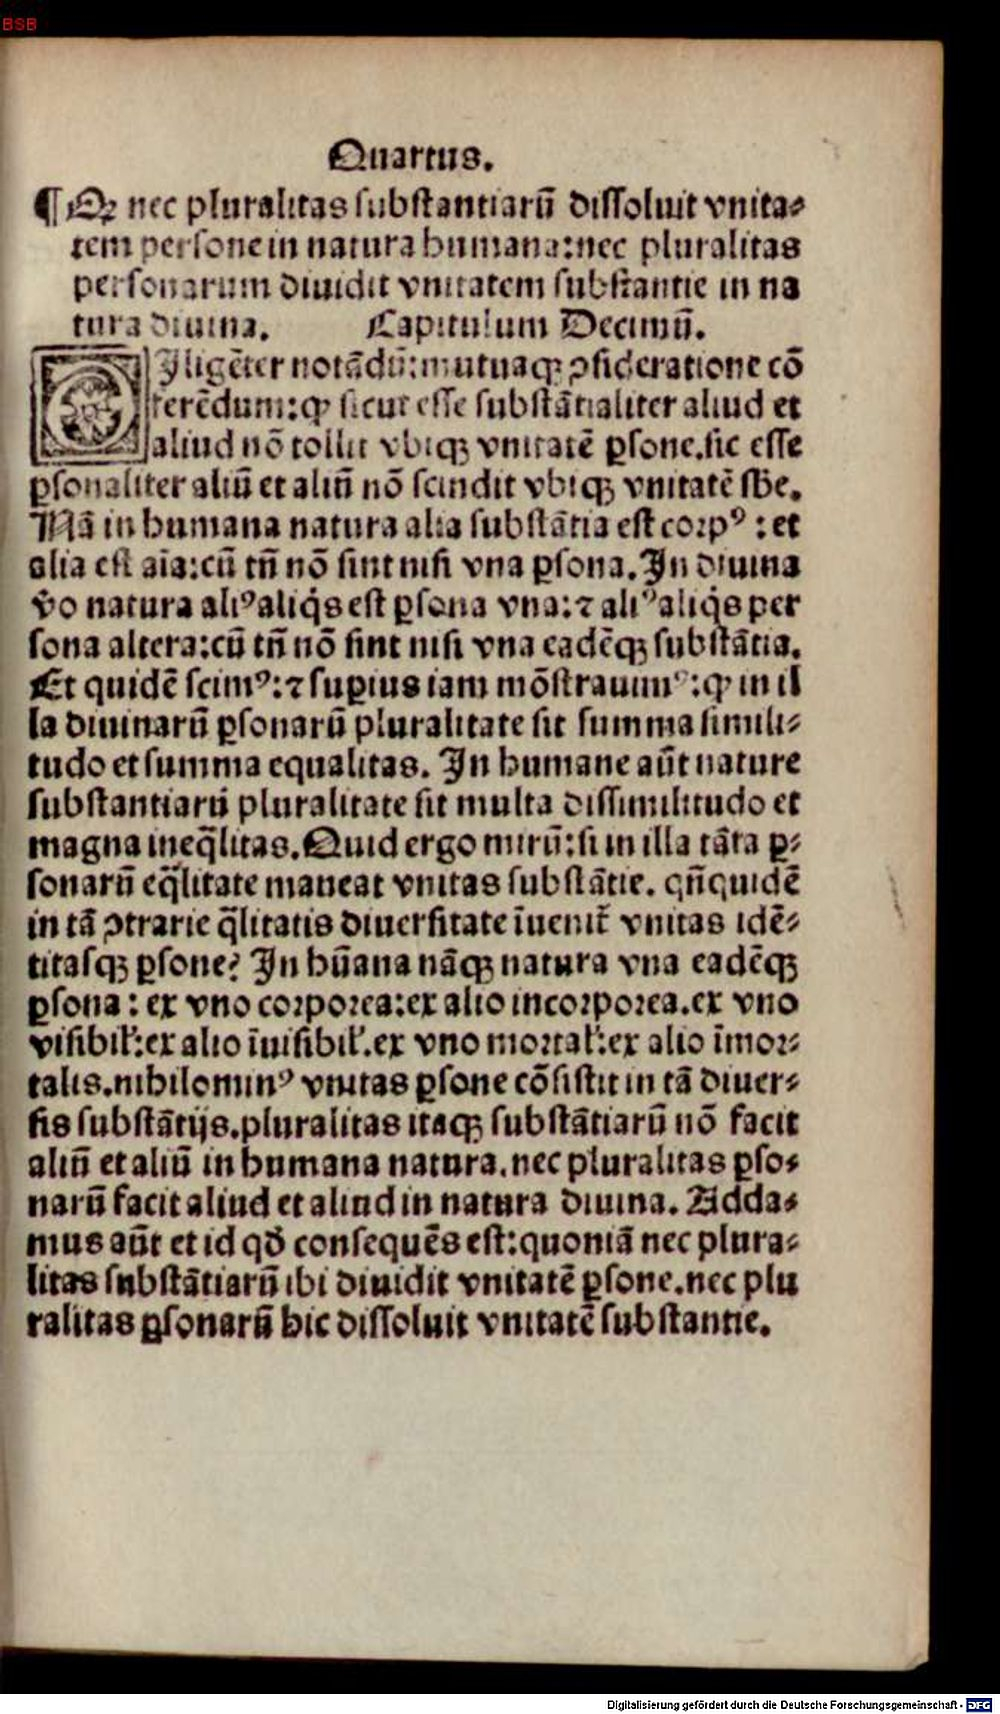 BSB
Quartus.
¶ Qꝫ nec pluralitas substantiarū dissoluit vnita⸗
tem persone in natura humana: nec pluralitas
personarum diuidit vnitatem substantie in na
tura diuina. Capitulum Decimū.
DIligēter notādū: mutuaqꝫ ꝯsideratione cō
ferēdum: ꝙ sicut esse substātialiter aliud et
aliud nō tollit vbiqꝫ vnitatē ꝑsone. sic esse
ꝑsonaliter aliū et aliū nō scindit vbiqꝫ vnitatē sbē.
Nā in humana natura alia substātia est corpꝰ: et
alia est aīa: cū tn̄ nō sint nisi vna ꝑsona. In diuina
v̊o natura aliꝰ aliq̇s est ꝑsona vna: ⁊ aliꝰ aliq̇s per
sona altera: cū tn̄ nō sint nisi vna eadēqꝫ substātia.
Et quidē scimꝰ: ⁊ suꝑius iam mōstrauimꝰ: ꝙ in il
la diuinarū ꝑsonarū pluralitate sit summa simili⸗
tudo et summa equalitas. In humane aūt nature
substantiarū pluralitate sit multa dissimilitudo et
magna ineq̄litas. Quid ergo mirū: si in illa tāta ꝑ⸗
sonarū eq̄litate maneat vnitas substātie. qn̄quidē
in tā ꝯtrarie q̄litatis diuersitate īuenit̄ vnitas idē⸗
titasqꝫ ꝑsone? In hūana nāqꝫ natura vna eadēqꝫ
ꝑsona: ex vno corporea: ex alio incorporea. ex vno
visibil̛: ex alio īuisibil̛. ex vno mortal̛: ex alio īmor⸗
talis. nihilominꝰ vnitas ꝑsone cōsistit in tā diuer⸗
sis substātijs. pluralitas itaqꝫ substātiarū nō facit
aliū et aliū in humana natura. nec pluralitas ꝑso⸗
narū facit aliud et aliud in natura diuina. Adda⸗
mus aūt et id qd̄ consequēs est: quoniā nec plura⸗
litas substātiarū ibi diuidit vnitatē ꝑsone. nec plu
ralitas ꝑsonarū hic dissoluit vnitatē substantie.
Digitalisierung gefördert durch die Deutsche Forschungsgemeinschaft - DFG